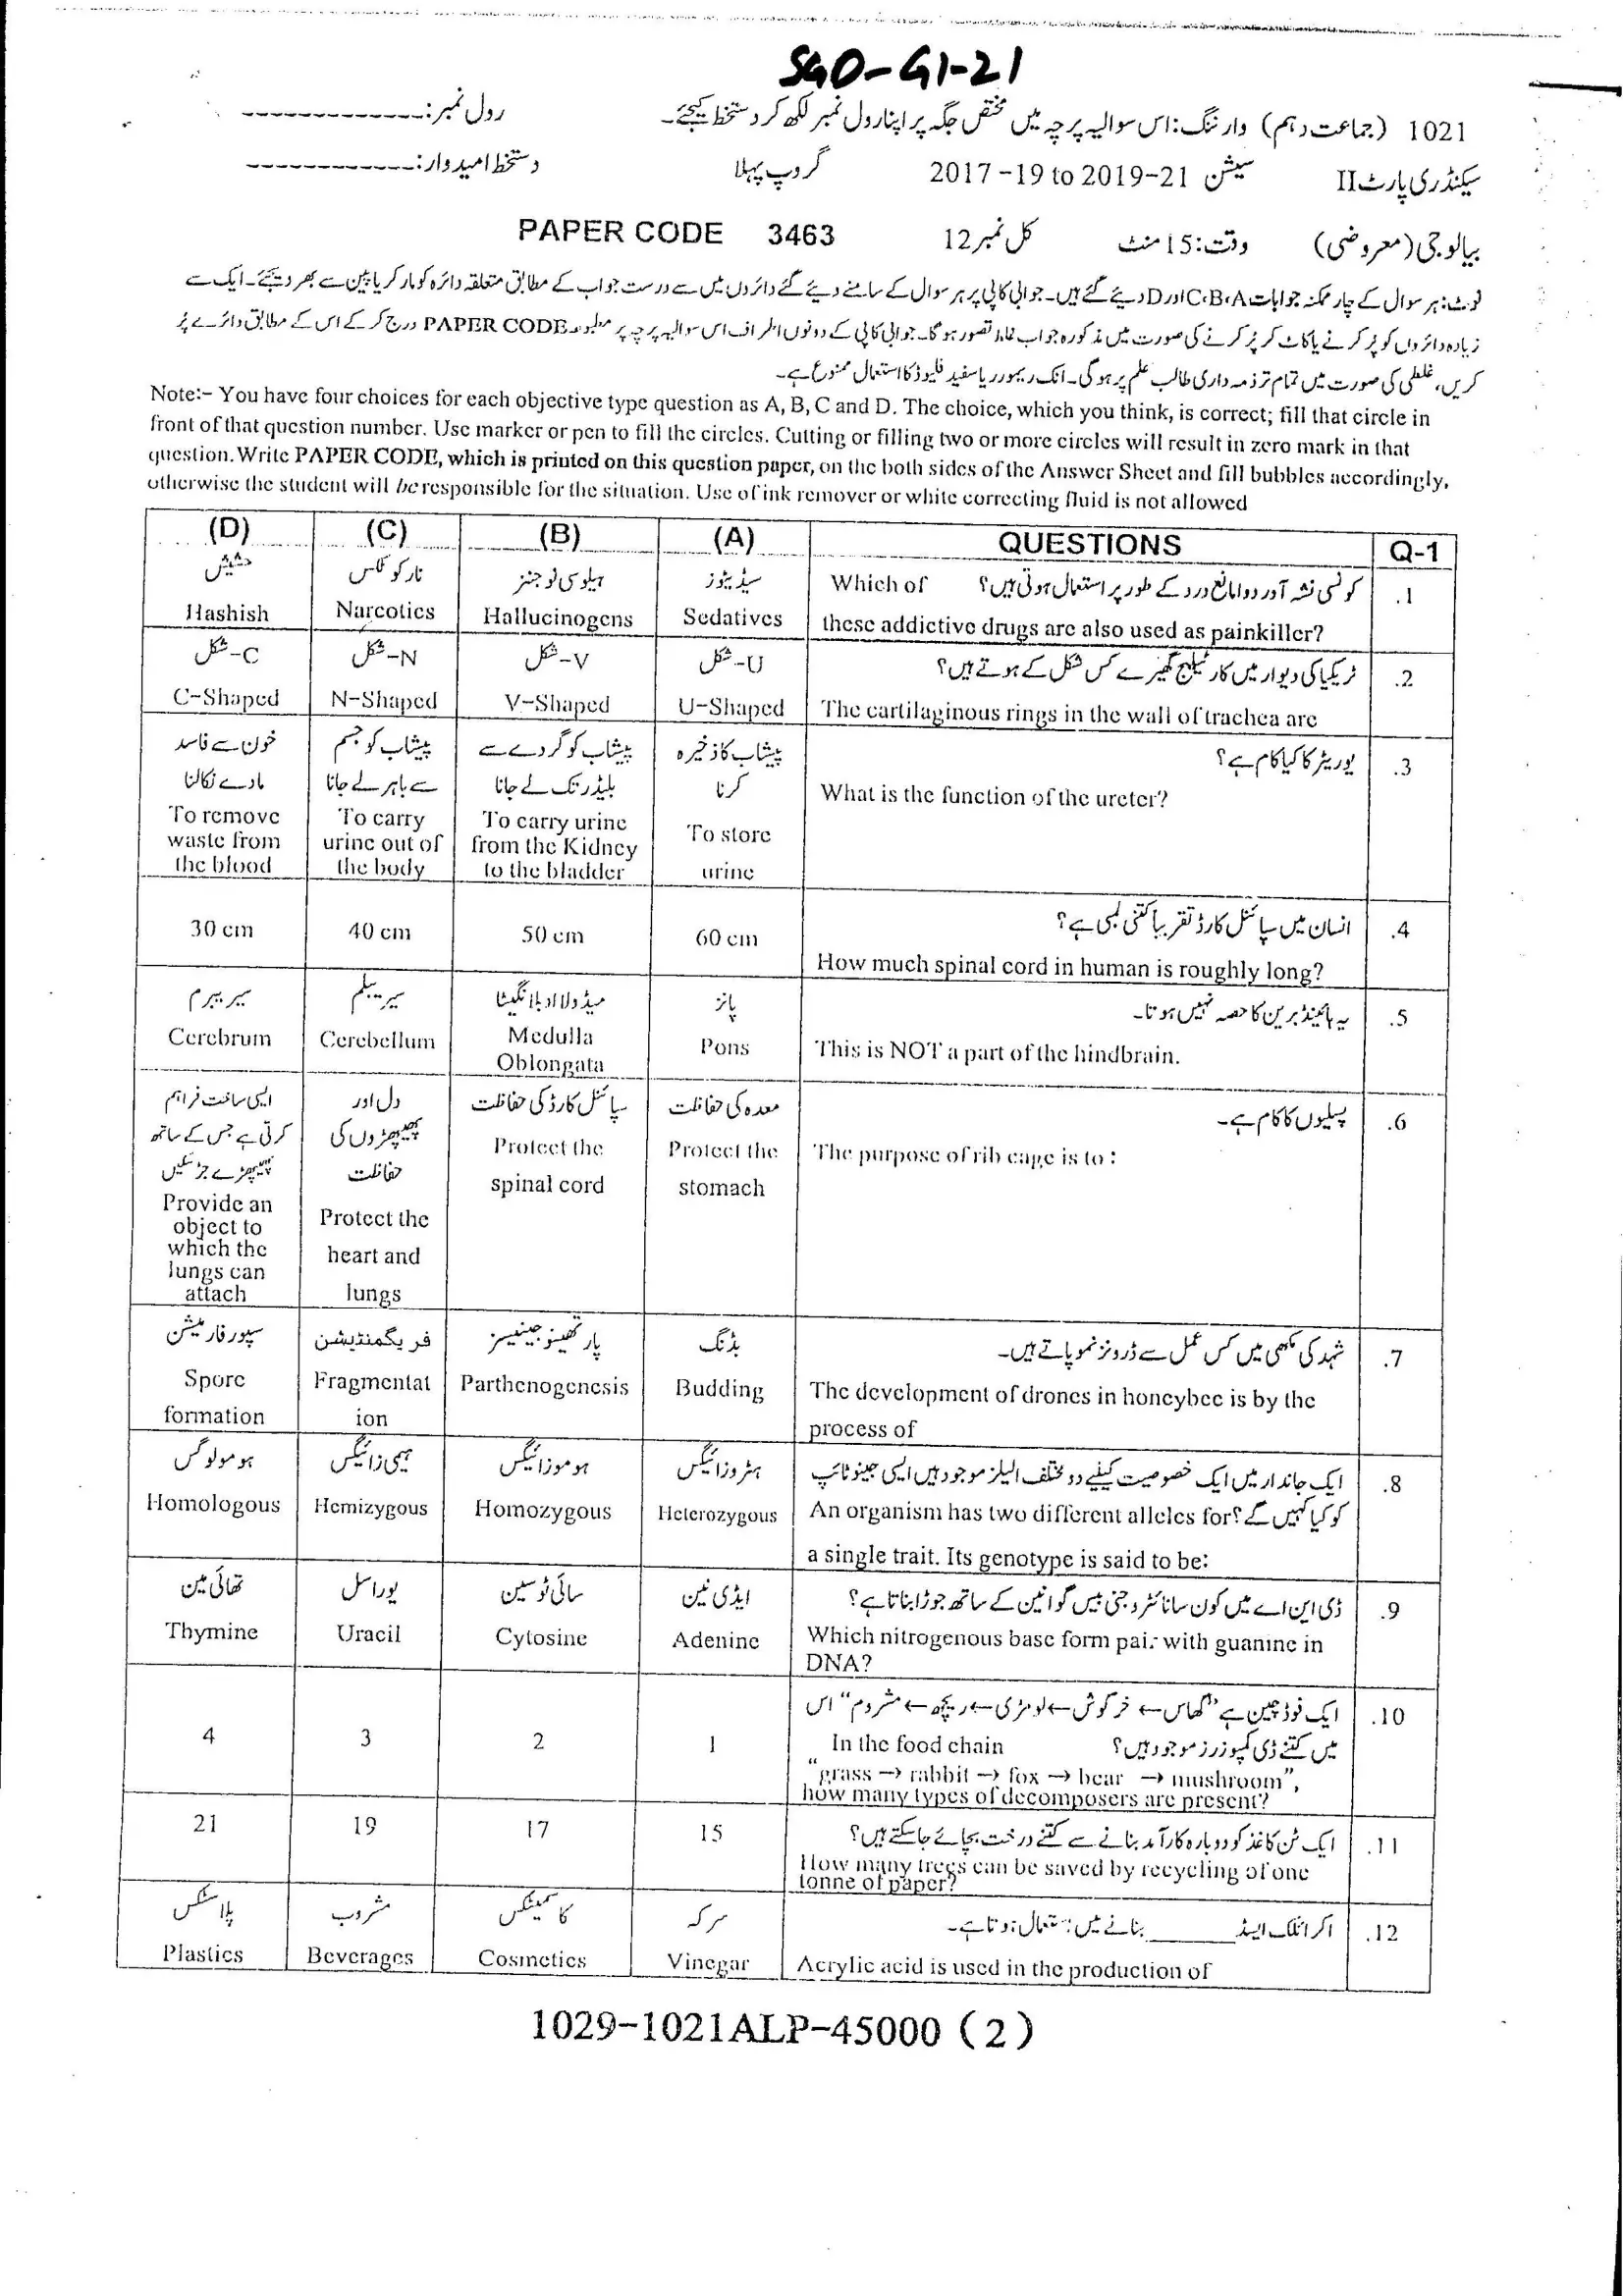 SGD-G1-21
1021 (جماعت دہم) وارننگ: اس سوالیہ پرچہ میں مختص جگہ پر اپنا رول نمبر لکھ کر دستخط کیجئے۔ رول نمبر: -------------
سیکنڈری پارٹ II سیشن 2017-19 to 2019-21 گروپ پہلا دستخط امیدوار: -------------
بیالوجی (معروضی) وقت: 15 منٹ کل نمبر 12 PAPER CODE 3463
نوٹ: ہر سوال کے چار ممکنہ جوابات A،B،C اور D دیئے گئے ہیں۔ جوابی کاپی پر ہر سوال کے سامنے دیئے گئے دائروں میں سے درست جواب کے مطابق متعلقہ دائرہ کو مارکر یا پین سے بھر دیجئے۔ ایک سے
زیادہ دائروں کو پُر کرنے یا کاٹ کر پُر کرنے کی صورت میں مذکورہ جواب غلط تصور ہوگا۔ جوابی کاپی کے دونوں اطراف اس سوالیہ پرچہ پر مطبوعہ PAPER CODE درج کر کے اس کے مطابق دائرے پُر
کریں، غلطی کی صورت میں تمام تر ذمہ داری طالب علم پر ہوگی۔ انک ریمورر یا سفید فلیوڈ کا استعمال ممنوع ہے۔
Note:- You have four choices for each objective type question as A, B, C and D. The choice, which you think, is correct; fill that circle in
front of that question number. Use marker or pen to fill the circles. Cutting or filling two or more circles will result in zero mark in that
question. Write PAPER CODE, which is printed on this question paper, on the both sides of the Answer Sheet and fill bubbles accordingly,
otherwise the student will be responsible for the situation. Use of ink remover or white correcting fluid is not allowed
(D) (C) (B) (A) QUESTIONS Q-1
.1 کونسی نشہ آور دوا مانع درد کے طور پر استعمال ہوتی ہیں؟ Which of
these addictive drugs are also used as painkiller?
سیڈیٹوز
Sedatives
ہیلوسی نوجنز
Hallucinogens
نارکوٹکس
Narcotics
حشیش
Hashish
.2 ٹریکیا کی دیوار میں کارٹیلیج گھیرے کس شکل کے ہوتے ہیں؟
The cartilaginous rings in the wall of trachea are
U-شکل
U-Shaped
V-شکل
V-Shaped
N-شکل
N-Shaped
C-شکل
C-Shaped
.3 یوریٹر کا کیا کام ہے؟
What is the function of the ureter?
پیشاب کا ذخیرہ
کرنا
To store
urine
پیشاب کو گردے سے
بلیڈر تک لے جانا
To carry urine
from the Kidney
to the bladder
پیشاب کو جسم
سے باہر لے جانا
To carry
urine out of
the body
خون سے فاسد
مادے نکالنا
To remove
waste from
the blood
.4 انسان میں سپائنل کارڈ تقریباً کتنی لمبی ہے؟
How much spinal cord in human is roughly long?
60 cm
50 cm
40 cm
30 cm
.5 یہ ہائینڈ برین کا حصہ نہیں ہوتا۔
This is NOT a part of the hindbrain.
پانز
Pons
میڈولا اوبلانگیٹا
Medulla
Oblongata
سیریبلم
Cerebellum
سیریبرم
Cerebrum
.6 پسلیوں کا کام ہے۔
The purpose of rib cage is to :
معدہ کی حفاظت
Protect the
stomach
سپائنل کارڈ کی حفاظت
Protect the
spinal cord
دل اور
پھیپھڑوں کی
حفاظت
Protect the
heart and
lungs
ایسی ساخت فراہم
کرتی ہے جس کے ساتھ
پھیپھڑے جڑ سکیں
Provide an
object to
which the
lungs can
attach
.7 شہد کی مکھی میں کس عمل سے ڈرونز نمو پاتے ہیں۔
The development of drones in honeybee is by the
process of
بڈنگ
Budding
پارتھینوجینیسز
Parthenogenesis
فریگمنٹیشن
Fragmentat
ion
سپور فارمیشن
Spore
formation
.8 ایک جاندار میں ایک خصوصیت کیلئے دو مختلف الیلز موجود ہیں ایسی جینوٹائپ
کو کیا کہیں گے؟ An organism has two different alleles for
a single trait. Its genotype is said to be:
ہٹروزائیگس
Heterozygous
ہوموزائیگس
Homozygous
ہیمی زائیگس
Hemizygous
ہومولوگس
Homologous
.9 ڈی این اے میں کون سا نائٹروجنی بیس گوانین کے ساتھ جوڑا بناتا ہے؟
Which nitrogenous base form pair with guanine in
DNA?
ایڈی نین
Adenine
سائی ٹوسین
Cytosine
یوراسل
Uracil
تھائی مین
Thymine
.10 ایک فوڈ چین ہے "گھاس ← خرگوش ← لومڑی ← ریچھ ← مشروم" اس
میں کتنے ڈی کمپوزرز موجود ہیں؟ In the food chain
"grass → rabbit → fox → bear → mushroom",
how many types of decomposers are present?
1
2
3
4
.11 ایک ٹن کاغذ کو دوبارہ کارآمد بنانے سے کتنے درخت بچائے جا سکتے ہیں؟
How many trees can be saved by recycling of one
tonne of paper?
15
17
19
21
.12 اکرائلک ایسڈ ______ بنانے میں استعمال ہوتا ہے۔
Acrylic acid is used in the production of
سرکہ
Vinegar
کاسمیٹکس
Cosmetics
مشروب
Beverages
پلاسٹکس
Plastics
1029-1021ALP-45000 (2)